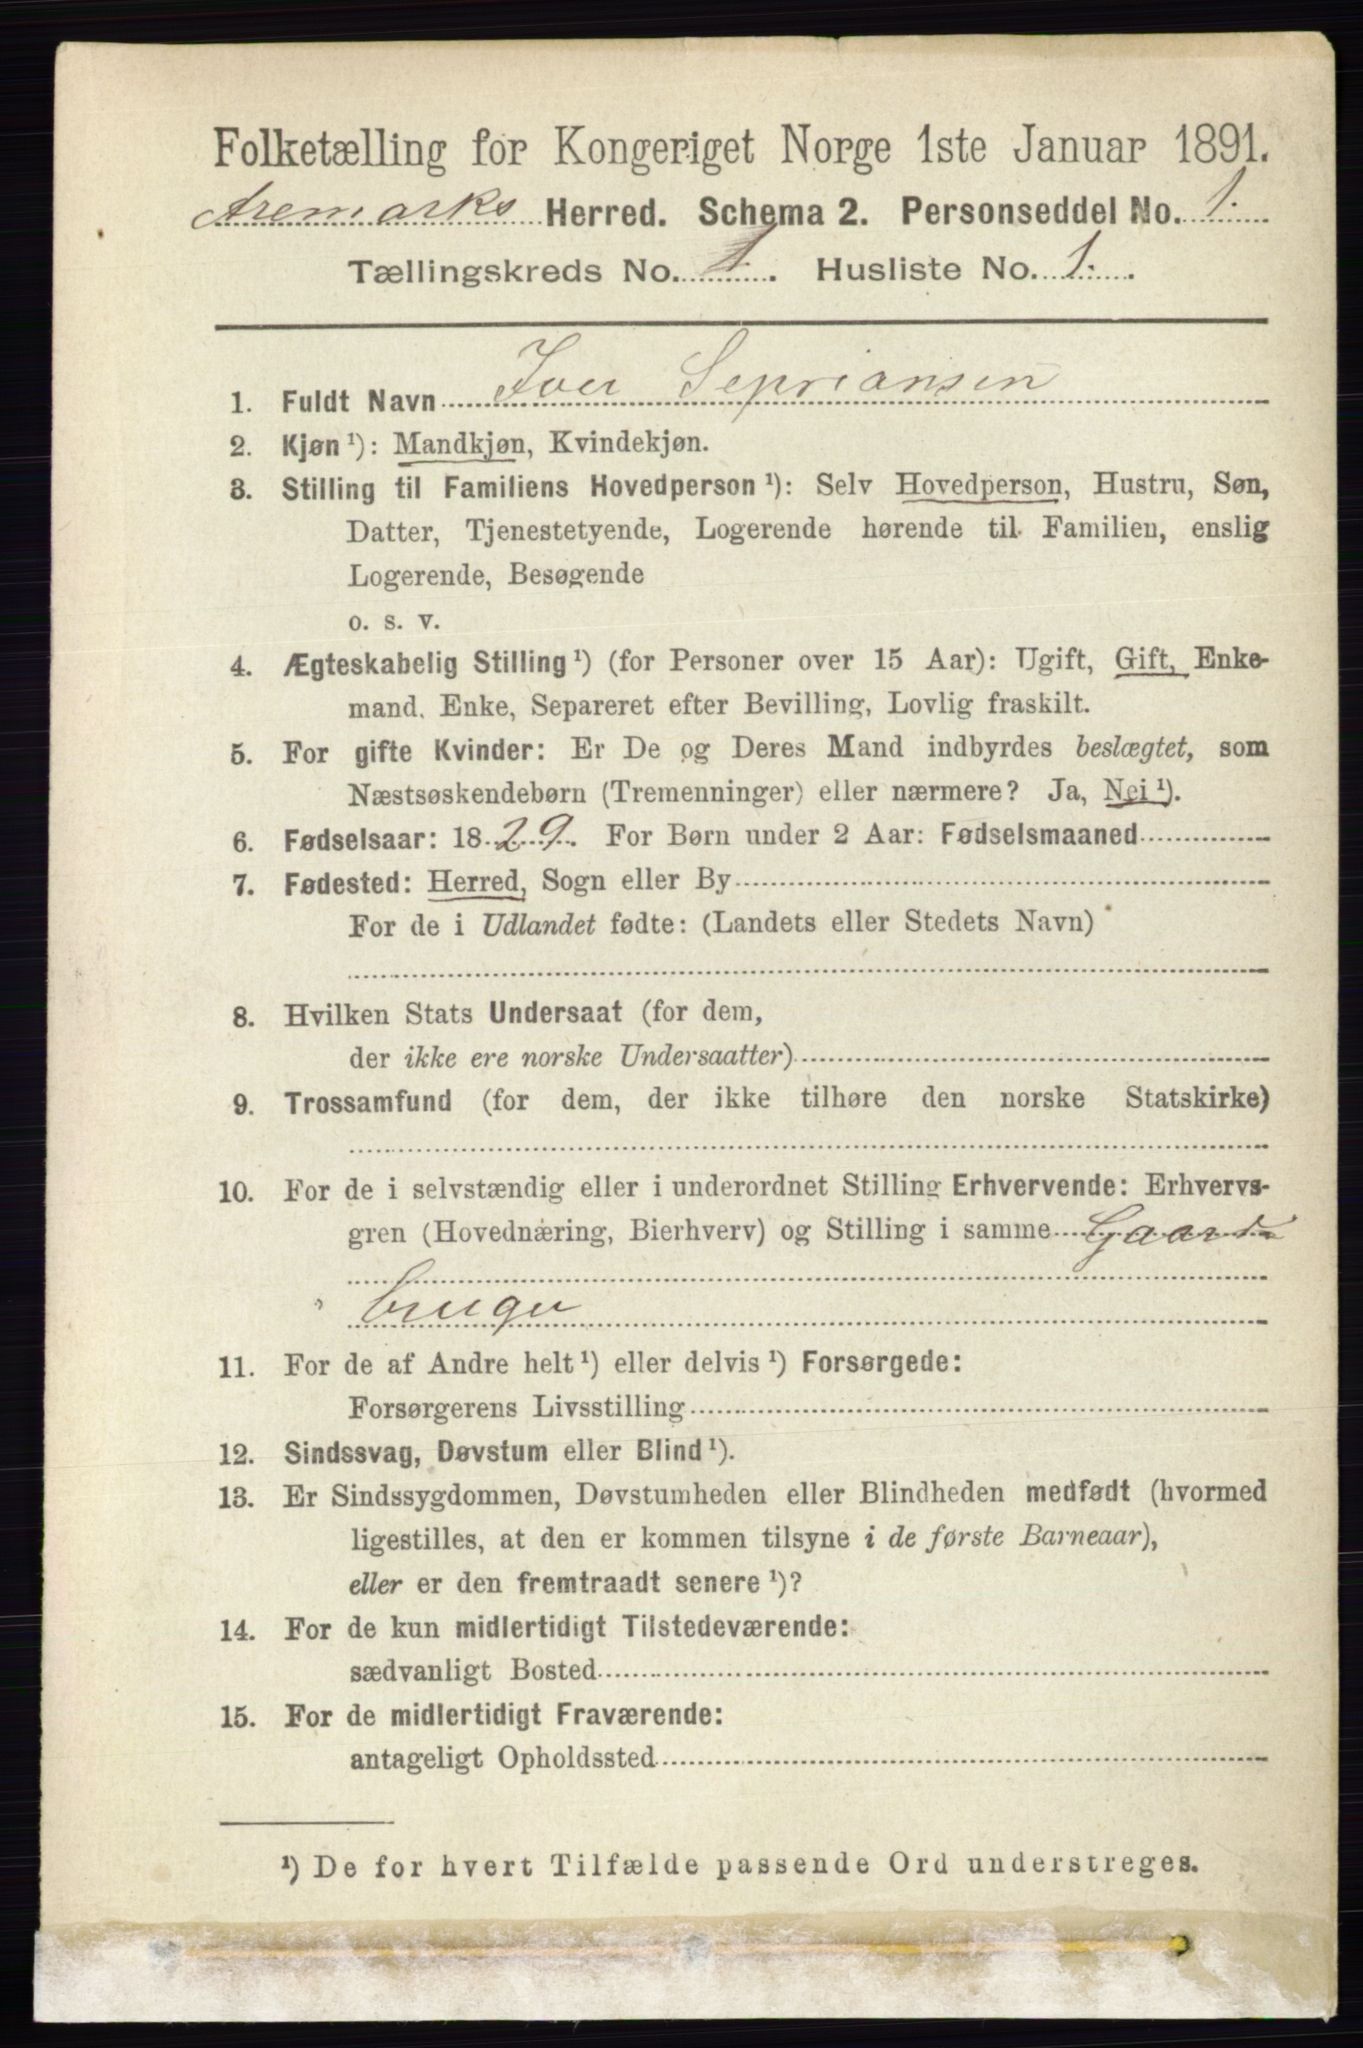 Folketælling for Kongeriget Norge 1ste Januar 1891.
Aremarks Herred. Schema 2. Personseddel No. 1.
Tællingskreds No. 1. Husliste No. 1.
1. Fuldt Navn Iver Sepriansen
2. Kjøn ¹): Mandkjøn, Kvindekjøn.
3. Stilling til Familiens Hovedperson ¹): Selv Hovedperson, Hustru, Søn,
Datter, Tjenestetyende, Logerende hørende til Familien, enslig
Logerende, Besøgende
o. s. v.
4. Ægteskabelig Stilling ¹) (for Personer over 15 Aar): Ugift, Gift, Enke-
mand, Enke, Separeret efter Bevilling, Lovlig fraskilt.
5. For gifte Kvinder: Er De og Deres Mand indbyrdes beslægtet, som
Næstsøskendebørn (Tremenninger) eller nærmere? Ja, Nei ¹).
6. Fødselsaar: 1829. For Børn under 2 Aar: Fødselsmaaned
7. Fødested: Herred, Sogn eller By
For de i Udlandet fødte: (Landets eller Stedets Navn)
8. Hvilken Stats Undersaat (for dem,
der ikke ere norske Undersaatter)
9. Trossamfund (for dem, der ikke tilhøre den norske Statskirke)
10. For de i selvstændig eller i underordnet Stilling Erhvervende: Erhvervs-
gren (Hovednæring, Bierhverv) og Stilling i samme Gaard
bruger
11. For de af Andre helt ¹) eller delvis ¹) Forsørgede:
Forsørgerens Livsstilling
12. Sindssvag, Døvstum eller Blind ¹).
13. Er Sindssygdommen, Døvstumheden eller Blindheden medfødt (hvormed
ligestilles, at den er kommen tilsyne i de første Barneaar),
eller er den fremtraadt senere ¹)?
14. For de kun midlertidigt Tilstedeværende:
sædvanligt Bosted
15. For de midlertidigt Fraværende:
antageligt Opholdssted
¹) De for hvert Tilfælde passende Ord understreges.